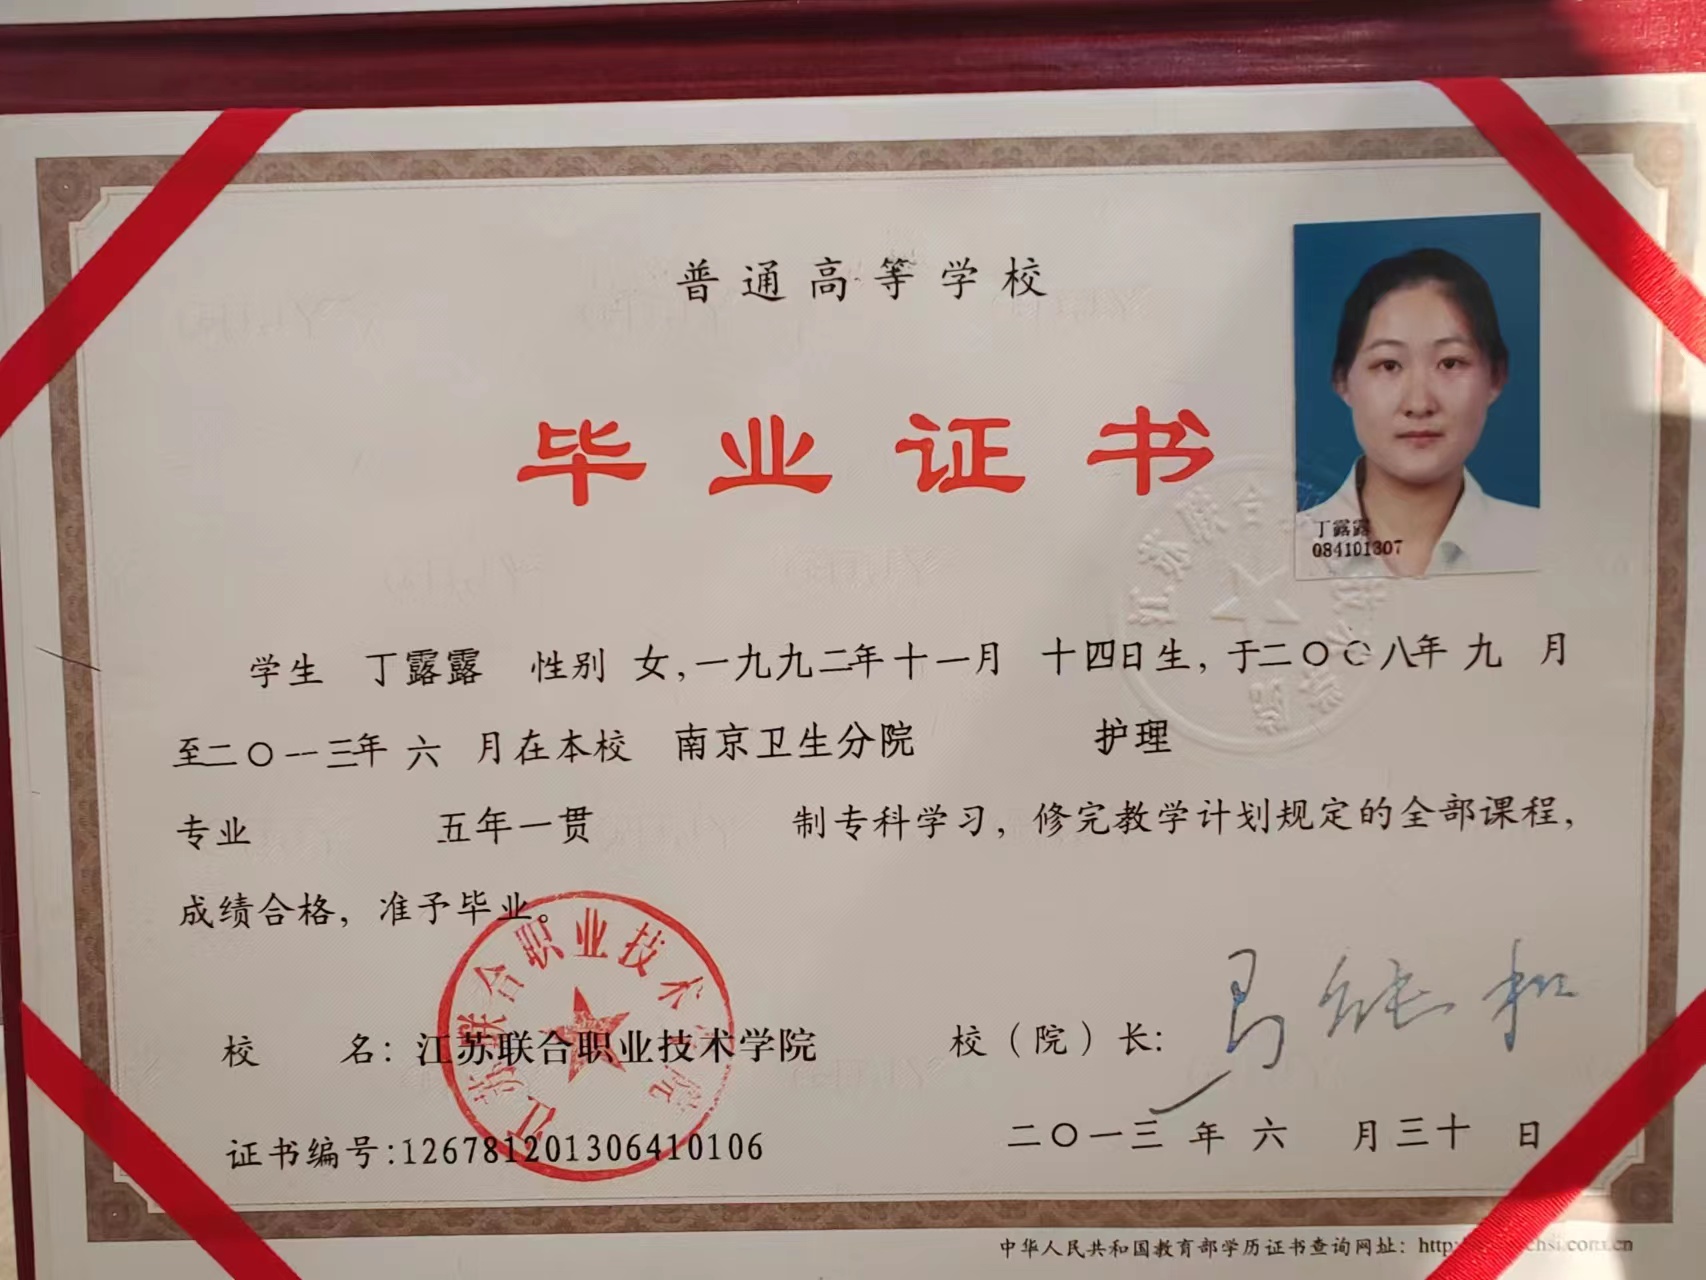 普通高等学校
毕业证书
丁露露
084101307
学生 丁露露 性别 女,一九九二年十一月 十四日生,于二〇〇八年 九 月
至二〇一三年 六 月在本校 南京卫生分院 护理
专业 五年一贯 制专科学习,修完教学计划规定的全部课程,
成绩合格,准予毕业。
江苏联合职业技术学院
校 名:江苏联合职业技术学院 校(院)长:
证书编号:126781201306410106 二〇一三 年 六 月三十 日
中华人民共和国教育部学历证书查询网址:http: